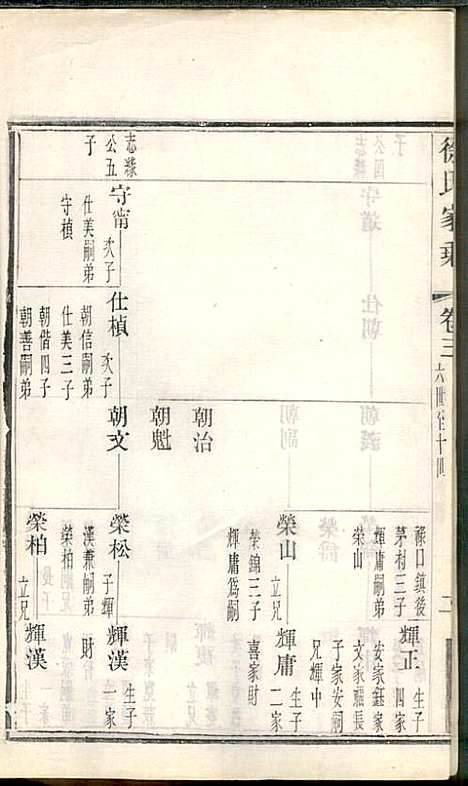 徐氏家乘
卷三
六世至十四
志祿
公五
子
守甯
次子
仕美嗣弟
守楨
仕楨
次子
朝信嗣弟
仕美三子
朝偕四子
朝善嗣弟
朝治
朝魁
朝文
祿口鎮後
茅村三子
輝庸嗣弟
榮山
榮山
立兄
榮錦三子
輝庸為嗣
榮松
子輝
漢兼嗣弟
榮柏
榮柏
立兄
輝正
生子
四家
安家鈺家
文家耀長
子家安嗣
兄輝中
輝庸
生子
二家
喜家財
輝漢
生子
一家
財
輝漢
生子
一家